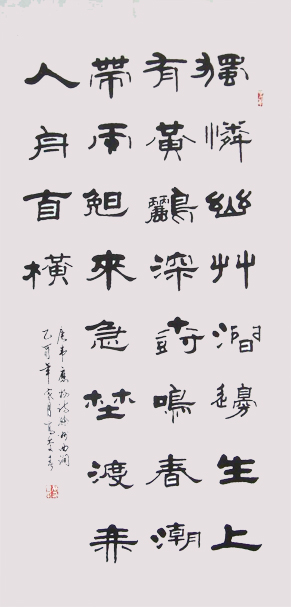 獨憐幽艸澗邊生上
有黃鸝深樹鳴春潮
帶雨晚來急埜渡無
人舟自橫
唐韋應物詩滁州西澗
乙酉年